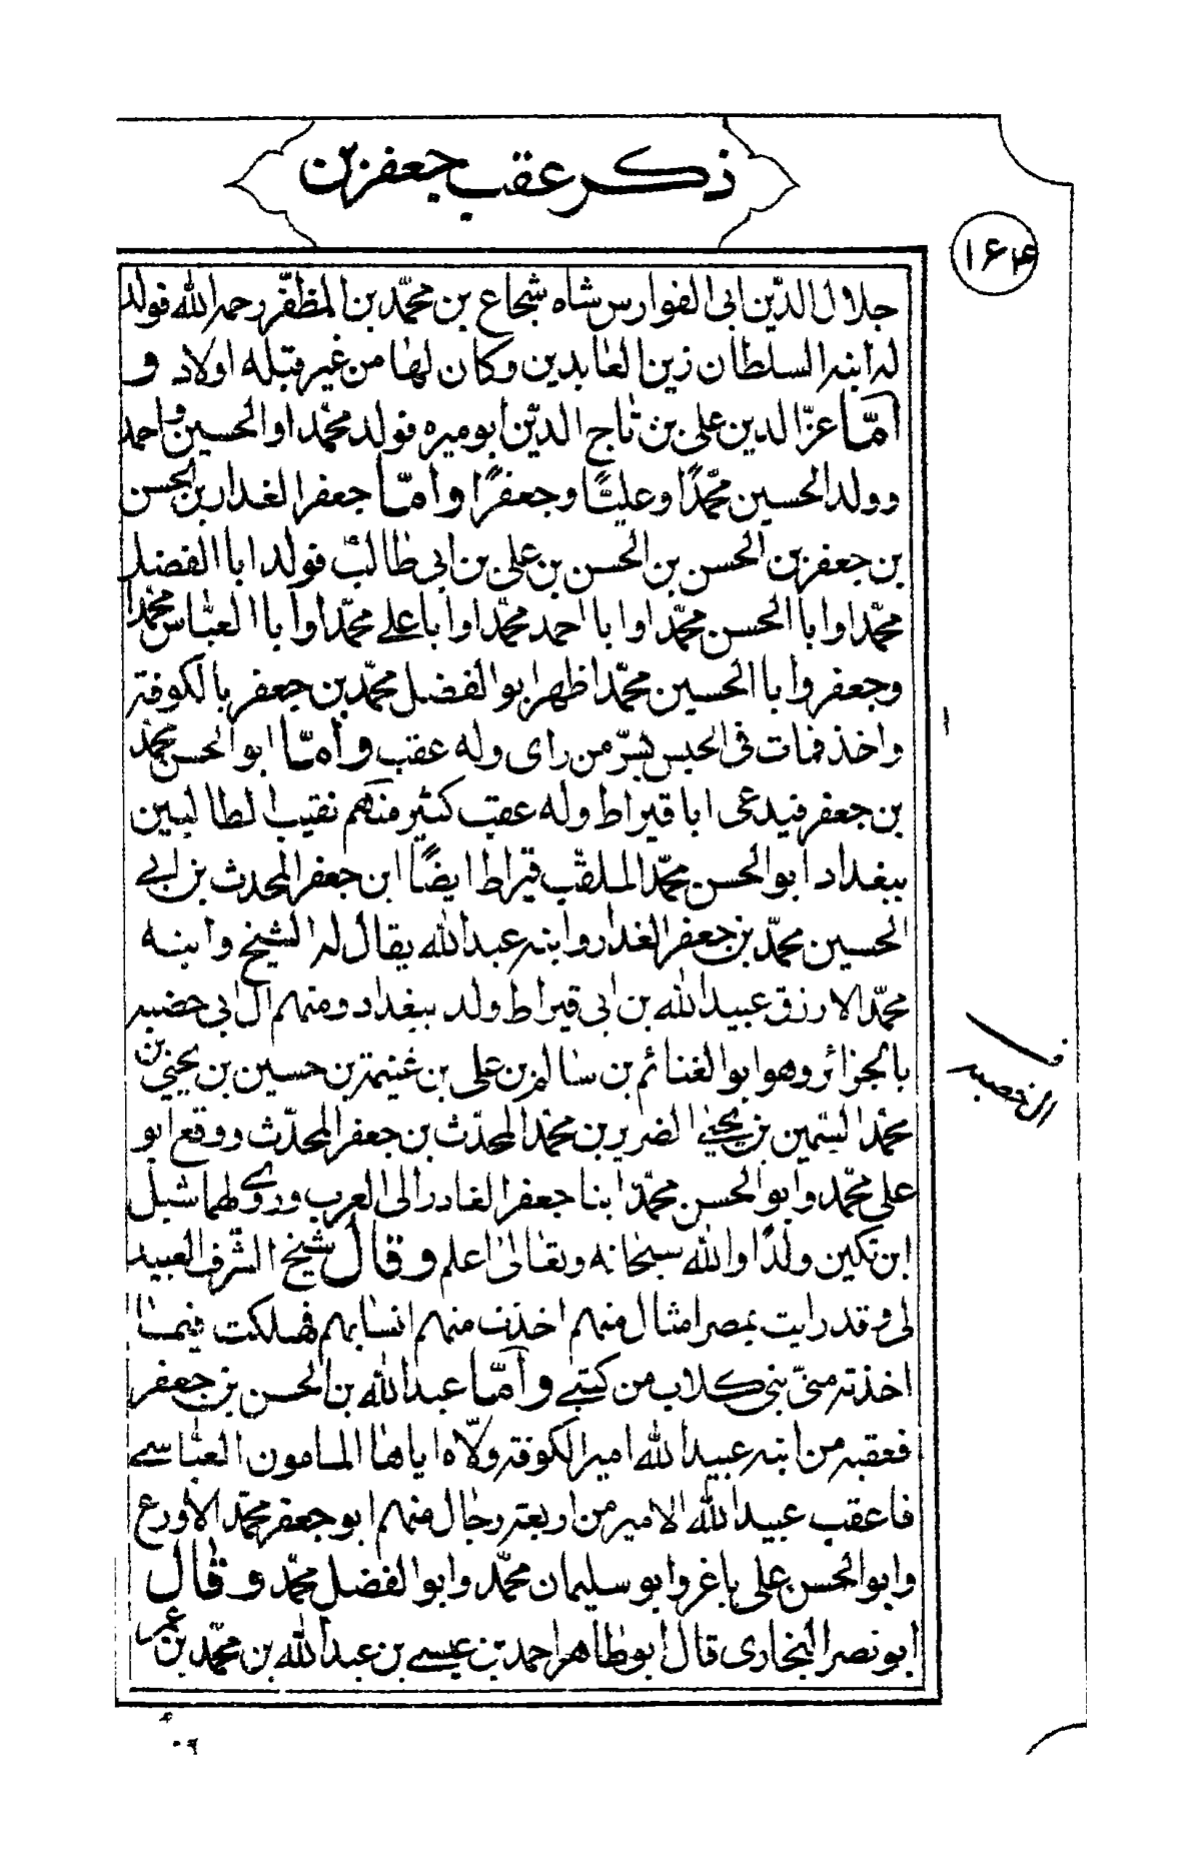 ذكر عقب جعفر بن
١٦٤
جلال الدّين ابى الفوارس شاه شجاع بن محمّد بن المظفّر رحمه الله فولد
له ابنه السلطان زين العابدين وكان لها من غير قبله اولاد و
أمّا عزّ الدين على بن تاج الدّين أبو ميره فولد محمّدا والحسين واحمد
وولد الحسين محمّدًا وعليًّا وجعفرًا وامّا جعفر الغدار بن الحسن
بن جعفر بن الحسن بن الحسن بن على بن ابى طالب فولد ابا الفضل
محمّدا وابا الحسن محمّدا وابا احمد محمّدا وابا على محمّدا وأبا العبّاس محمّدا
وجعفر وأبا الحسين محمّدا ظهر ابو الفضل محمّد بن جعفر بالكوفة
واخذ فمات فى الحبس بسرّ من راى وله عقب وأمّا ابو الحسن محمّد
بن جعفر فيدعى ابا قيراط وله عقب كثير منهم نقيب الطالبيين
ببغداد ابو الحسن محمّد الملقّب قيراط ايضًا ابن جعفر المحدث بن ابى
الحسين محمّد بن جعفر الغدار وابنه عبد الله يقال له الشيخ وابنه
محمّد الازرق عبيد الله بن ابى قيراط ولد ببغداد ومنهم ال ابى خضيه
بالجزائر وهو ابو الغنائم بن سالم بن على بن غنيمة بن حسين بن يحيى بن
محمّد السمين بن يحيى الضرير بن محمد المحدّث بن جعفر المحدّث ووقع ابو
على محمّد وابو الحسن محمّد ابنا جعفر الغادر الى العرب وروى لهما شبل
ابن تكين ولدًا والله سبحانه وتعالى اعلم وقال شيخ الشرف العبيد
لى وقد رايت بمصر امثال منهم اخذت منهم انسابهم فهلكت فيما
اخذته منّى بنى كلاب من كتبى وأمّا عبد الله بن الحسن بن جعفر
فعقبه من ابنه عبيد الله امير الكوفة ولّاه اياها المامون العبّاسى
فاعقب عبيد الله الامير من اربعة رجال منهم ابو جعفر محمّد الأدرع
وابو الحسن على باغر وابو سليمان محمّد وابو الفضل محمّد وقال
ابو نصر البخارى قال أبو طاهر احمد بن عيسى بن عبد الله بن محمّد بن عمر